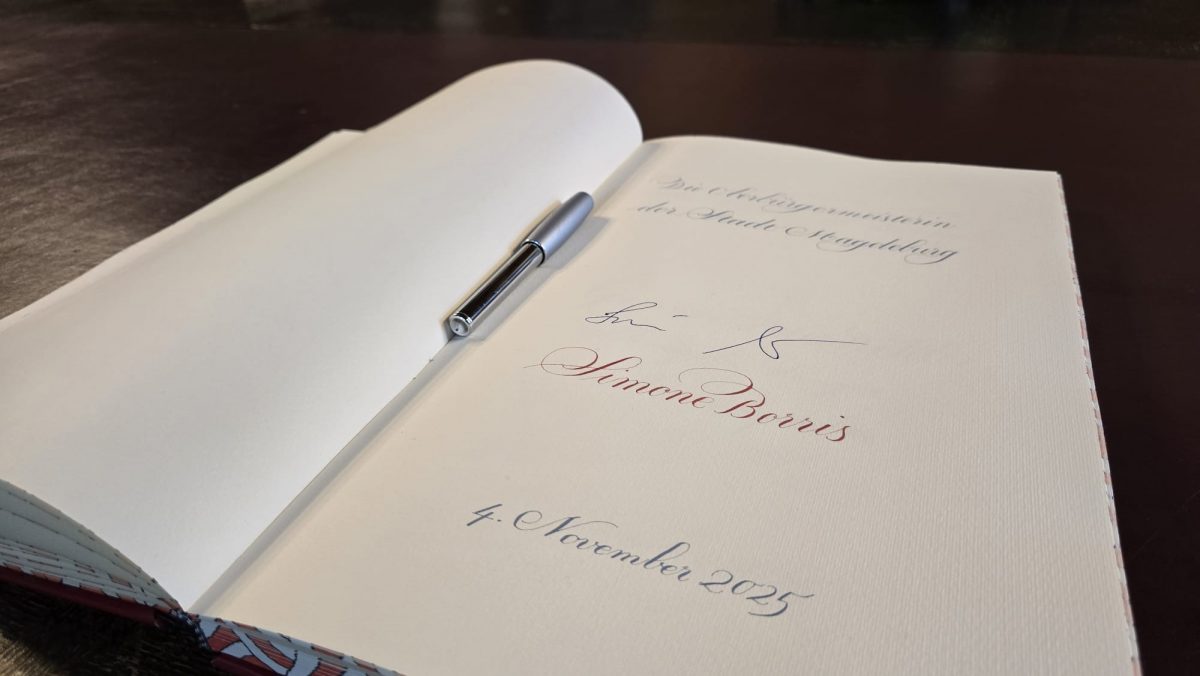 Die Oberbürgermeisterin
der Stadt Magdeburg
Simone Borris
4. November 2025